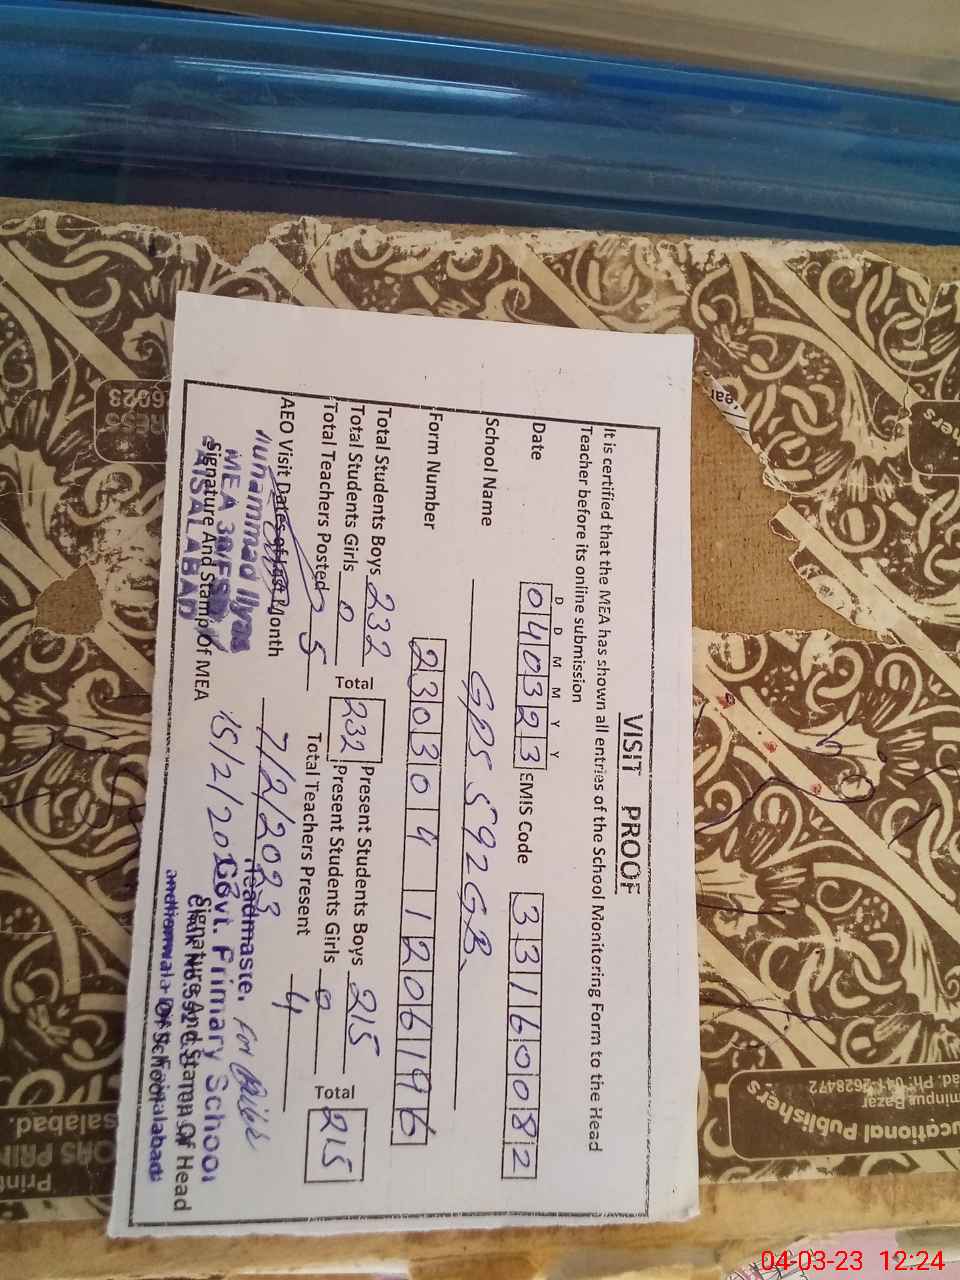 VISIT PROOF
It is certified that the MEA has shown all entries of the School Monitoring Form to the Head
Teacher before its online submission
D D M M Y Y
Date 040323 EMIS Code 33160082
School Name GPS 592 GB
Form Number 230304 1206196
Total Students Boys 232 Total 232 Present Students Boys 215 Total 215
Total Students Girls 0 Present Students Girls 0
Total Teachers Posted 5 Total Teachers Present 4
AEO Visit Dates of Last Month 7/2/2023
15/2/2023
Muhammad Ilyas
MEA 38/FSD
FAISALABAD
Signature And Stamp Of MEA
Govt. Primary School
Signature And Stamp Of Head
Of School
ucational Publishers
minpur Bazar
ad. Ph: 041-2628472
salabad.
Print
04-03-23 12:24